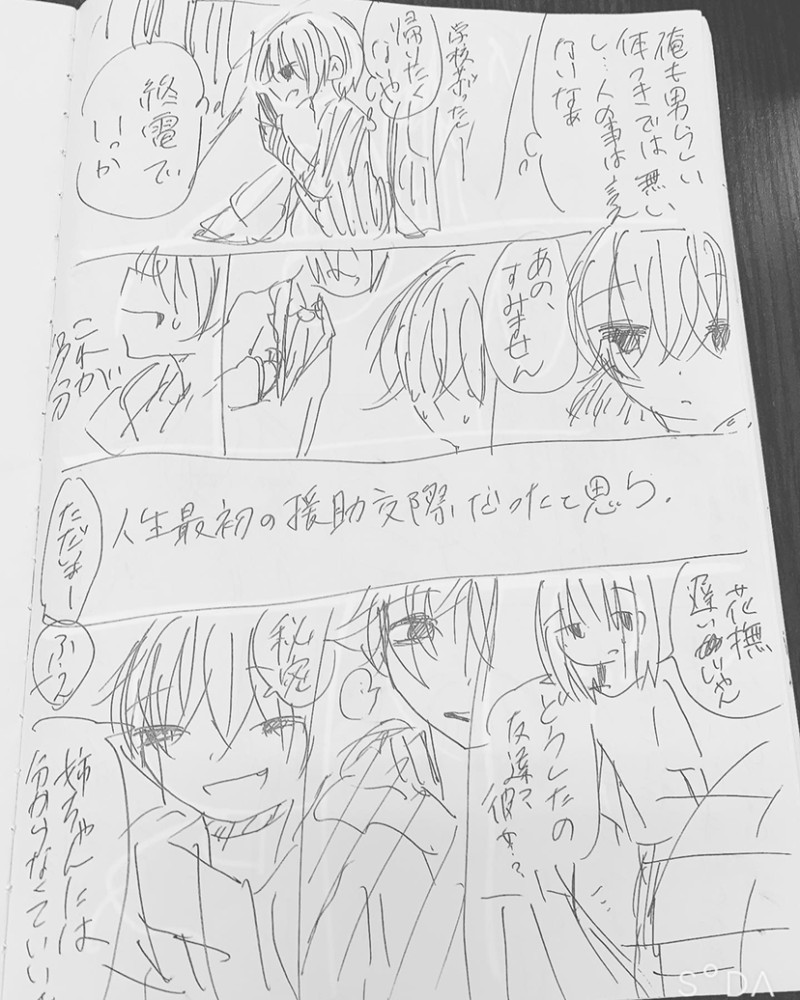 俺も男らしい
体つきでは無い
し…人の事は言え
ないなぁ
学校だったし
帰りたく
ないや
終電で
いっか
あの、
すみません
これが
人生最初の援助交際だったと思う.
ただいまー
花撫
遅いじゃん
どうしたの
友達?
彼女?
秘密
ふぇ
姉ちゃんには
分からなくていい
SODA